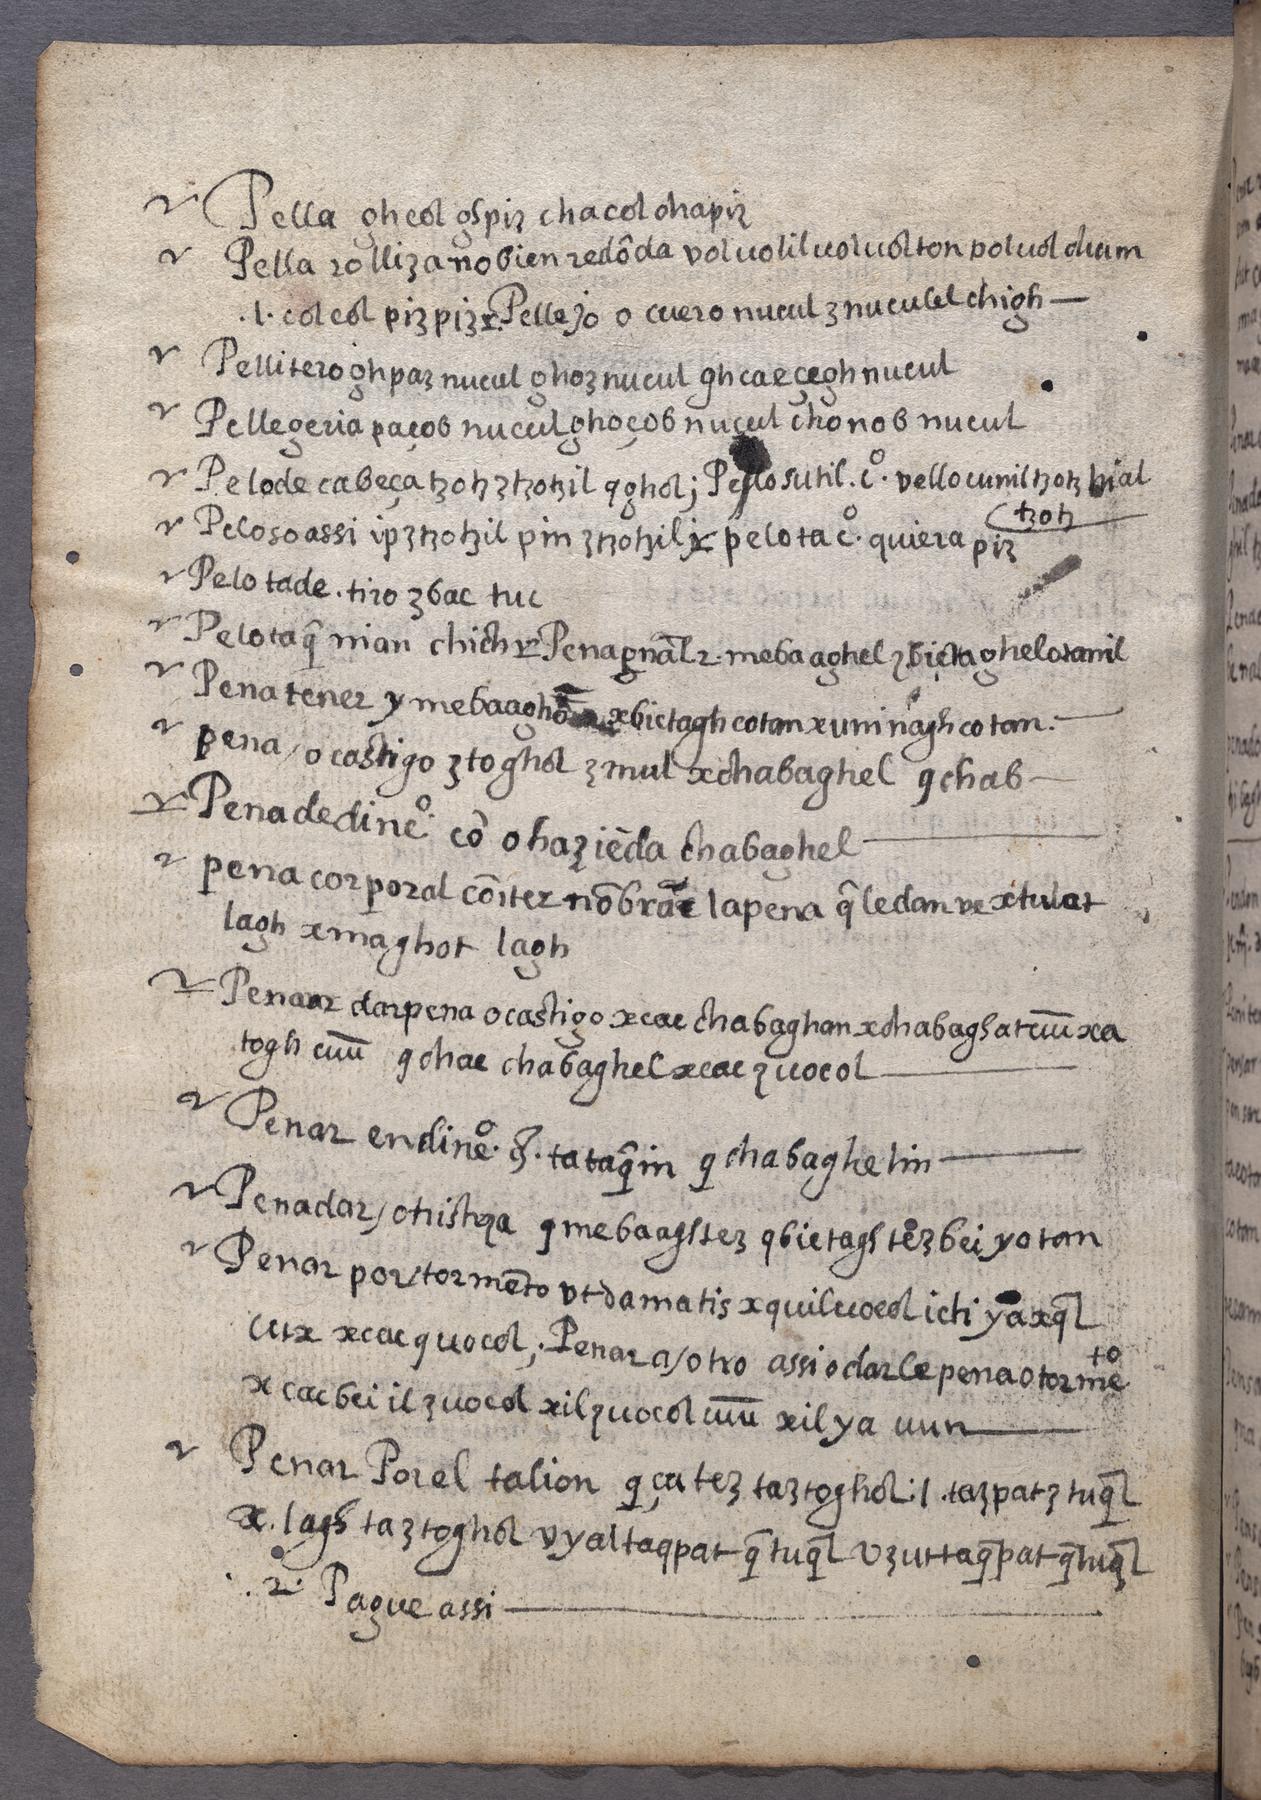 r Pella ghcol gh piz chacol chapiz
r Pella rolliza no bien redōda voluolil uoluolton poluol dium
.l. colcol pizpiz r. Pellejo o cuero nucul znuculel chigh —
r Pellitero ghpaz nucul ghoz nucul ghcaeçegh nucul
r Pellegeria paçob nucul ghoçob nucul chonob nucul
r Pelo de cabeça tzotz ztzotzil qghol; Pelo sutil. c͒. vello cunil tzotz
r Peloso assi ipztzotzil pim ztzotzil r pelota c͒. quiera piz tzotz
r Pelota de. tiro zbac tuc
r Pelota q̄ mian chich r Pena gn̄al r. mebaaghel zbictaghel otanil
r Pena tener y mebaagh xbictagh cotan xuninagh cotan. —
r pena / o castigo ztoghol zmul xchabaghel qchab —
r Pena de dine͒. cō o haziēda chabaghel —
r pena corporal cōiter nōbrā la pena q̄ le dan ve xtulat
lagh xmaghot lagh
r Penar dar pena o castigo xcac chabaghan xchabaghat cuū xca
togh cuū qchac chabaghel xcac zuocol —
r Penar en dine͒. g̃. tataq̄in q chabaghelin —
r Penadar / o tristeza q mebaagh tez qbictagh tez bei yotan
r Penar por / tormēto vt damatis xquiluocol icti ya xq̄l
cux xcac quocol; Penar a / otro assi o darle pena o tormēto
xcac bei il zuocol xil zuocol cuū xil ya uun —
r Penar Por el talion q ça tez taztoghol .l. tazpat z tuq̄l
x. lagh taztoghol vyal taqpat q̄ tuq̄l vzut taq̄pat q̄tuq̄l
.. r. Pague assi —